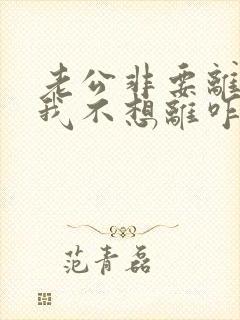 老公非要離
我不想離咋
范青磊